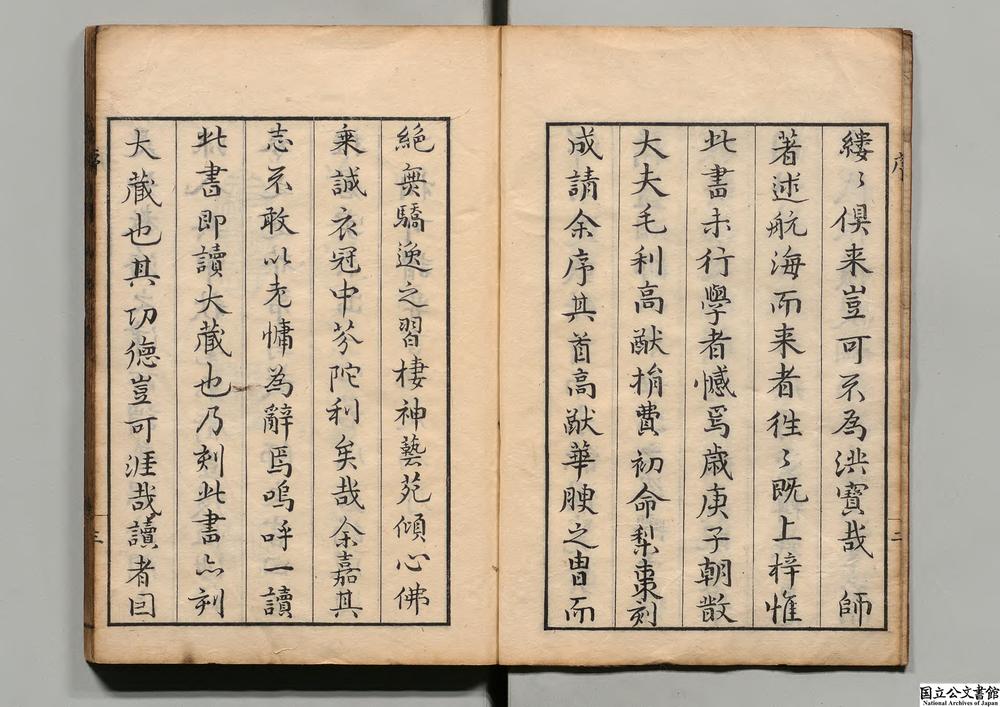 縷〻俱来豈可不為洪寶哉　師
著述航海而来者徃〻既上梓惟
此書未行學者憾焉歲庚子朝散
大夫毛利高猷捐費初命梨棗刻
成請余序其首高猷華腴之冑而
絕無驕逸之習棲神藝苑傾心佛
乗誠衣冠中芬陀利矣哉余嘉其
志不敢以老慵為辭焉嗚呼一讀
此書即讀大藏也乃刻此書亦刻
大藏也其功德豈可涯哉讀者因
序
三
三
国立公文書館
National Archives of Japan